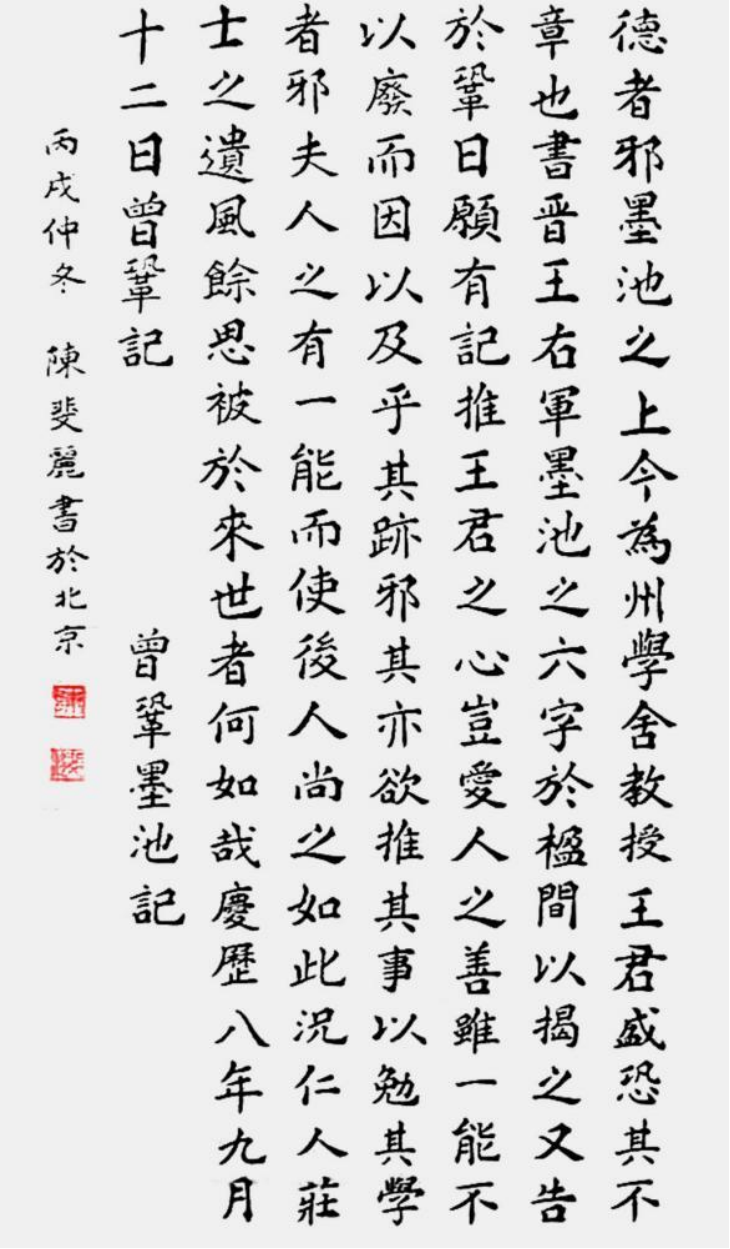 德者邪墨池之上今為州學舍教授王君盛恐其不
章也書晋王右軍墨池之六字於楹間以揭之又告
於鞏曰願有記推王君之心豈愛人之善雖一能不
以廢而因以及乎其跡邪其亦欲推其事以勉其學
者邪夫人之有一能而使後人尚之如此況仁人莊
士之遺風餘思被於來世者何如哉慶歷八年九月
十二日曾鞏記
曾鞏墨池記
丙戌仲冬 陳斐麗書於北京